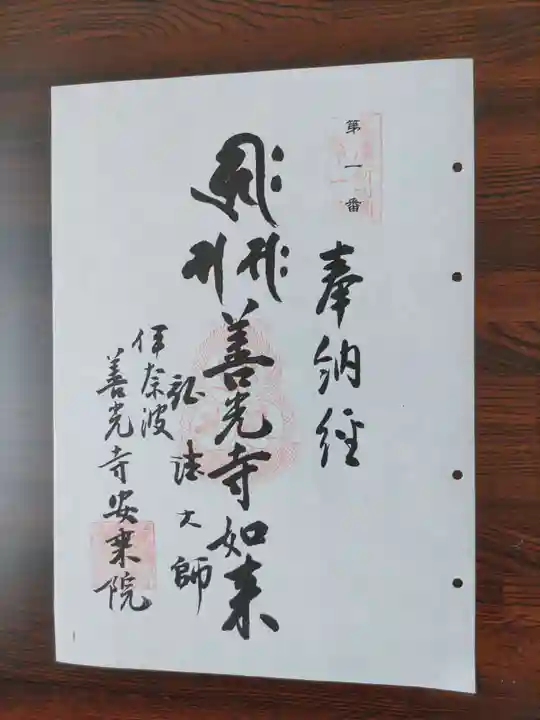 第一番
奉納経
善光寺如来
弘法大師
伊奈波
善光寺安乗院